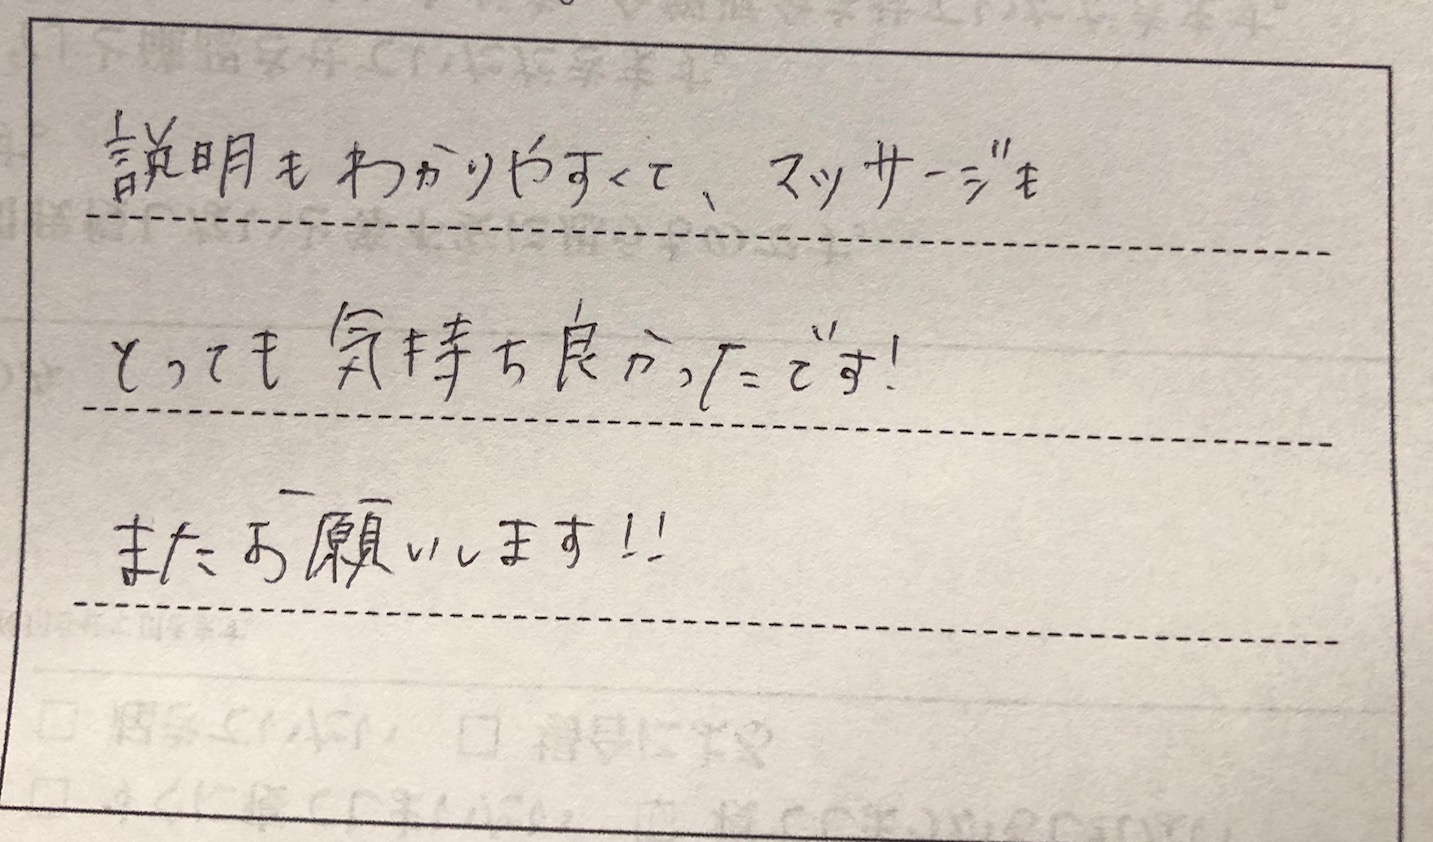 説明もわかりやすくて、マッサージも
とっても気持ち良かったです!
またお願いします!!